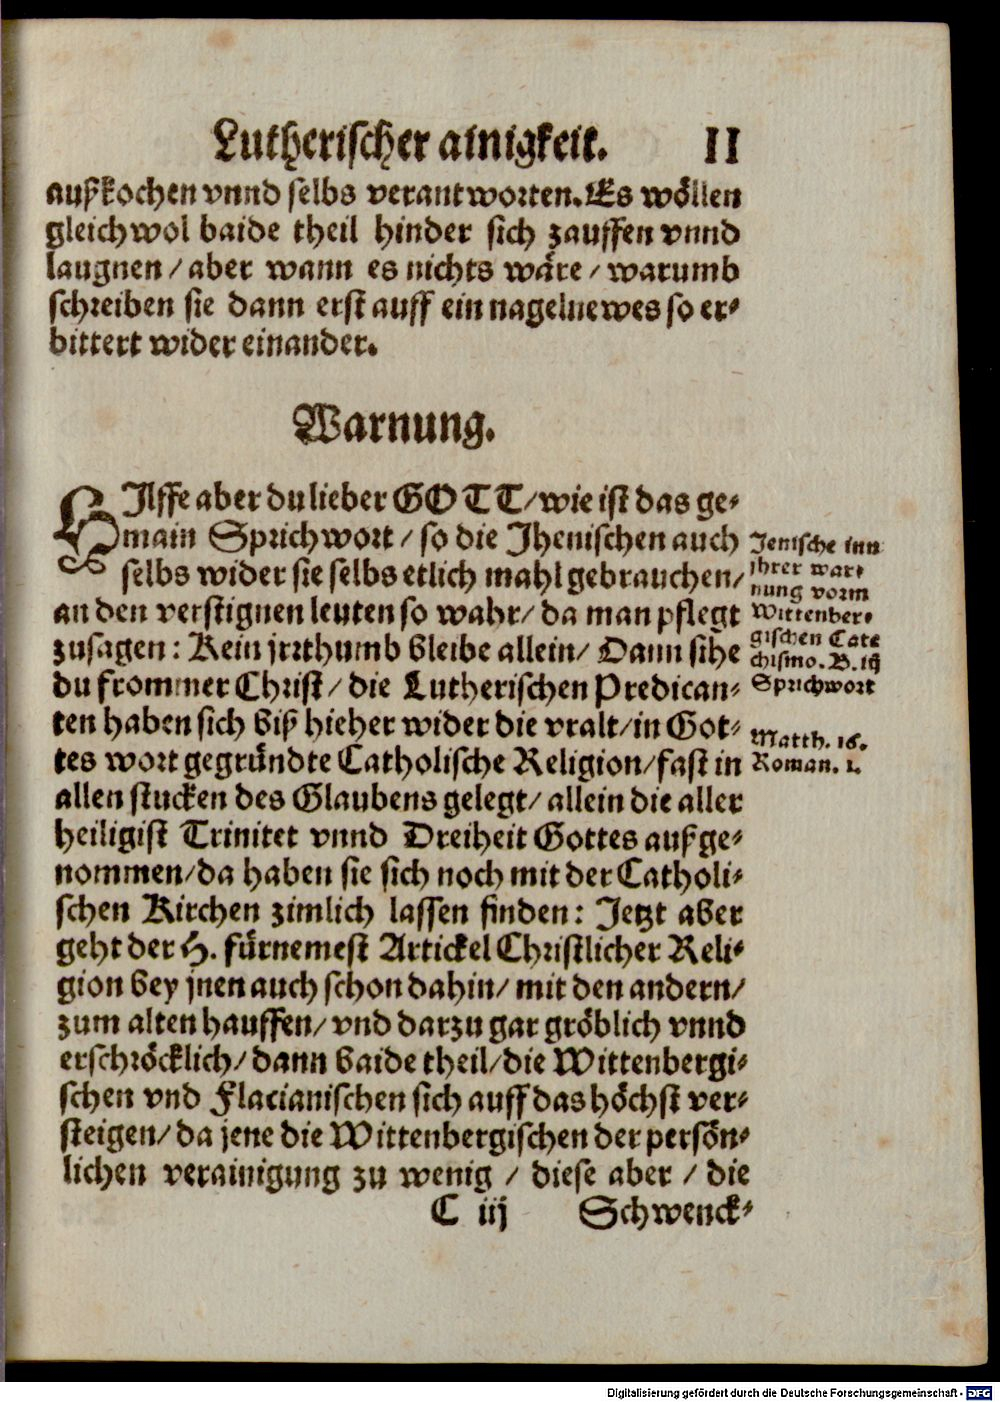 Lutherischer ainigkeit. 11
außkochen vnnd selbs verantworten. Es wöllen
gleichwol baide theil hinder sich zauffen vnnd
laugnen / aber wann es nichts wäre / warumb
schreiben sie dann erst auff ein nagelnewes so er⸗
bittert wider einander.
Warnung.
HIlffe aber du lieber GOTT / wie ist das ge⸗
main Sprichwort / so die Jhenischen auch
selbs wider sie selbs etlich mahl gebrauchen /
an den verstignen leuten so wahr / da man pflegt
zusagen: Kein jrrthumb bleibe allein / Dann sihe
du frommer Christ / die Lutherischen Predican⸗
ten haben sich biß hieher wider die vralt / in Got⸗
tes wort gegründte Catholische Religion / fast in
allen stucken des Glaubens gelegt / allein die aller
heiligist Trinitet vnnd Dreiheit Gottes außge⸗
nommen / da haben sie sich noch mit der Catholi⸗
schen Kirchen zimlich lassen finden: Jetzt aber
geht der H. fürnemest Artickel Christlicher Reli⸗
gion bey jnen auch schon dahin / mit den andern /
zum alten hauffen / vnd darzu gar gröblich vnnd
erschröcklich / dann baide theil / die Wittenbergi⸗
schen vnd Flacianischen sich auff das höchst ver⸗
steigen / da jene die Wittenbergischen der persön⸗
lichen verainigung zu wenig / diese aber / die
C iij Schwenck⸗
Jenische inn
ihrer war⸗
nung vorm
Wittenber⸗
gischen Cate
chismo. B. iij
Sprichwort
Matth. 16.
Roman. 1.
Digitalisierung gefördert durch die Deutsche Forschungsgemeinschaft - DFG